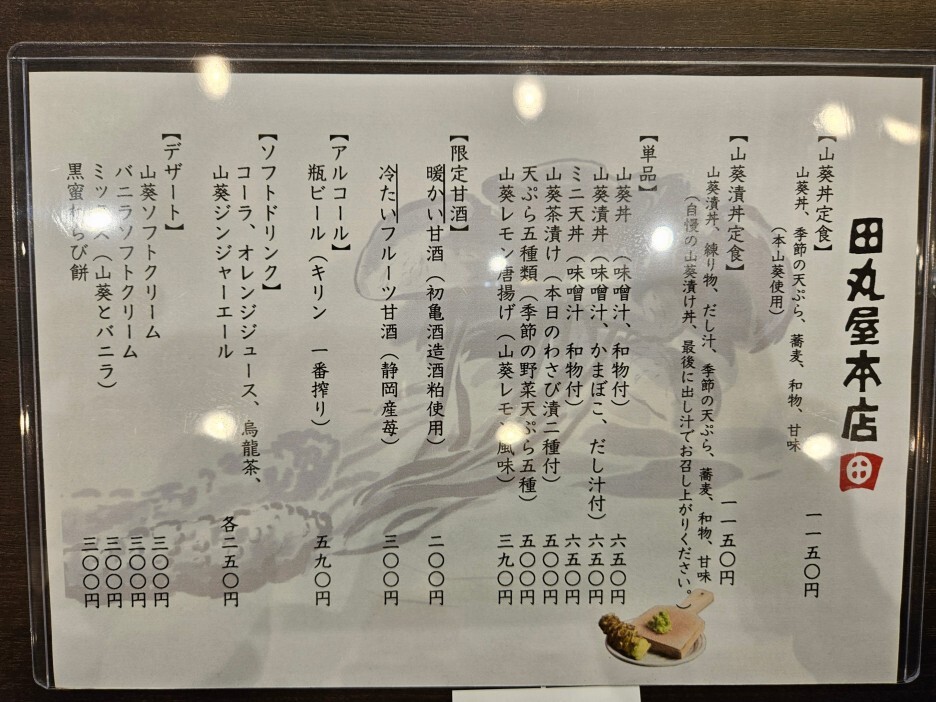 田丸屋本店
田
【山葵丼定食】
一一五〇円
山葵丼、季節の天ぷら、蕎麦、和物、甘味
(本山葵使用)
【山葵漬丼定食】
一一五〇円
山葵漬丼、練り物、だし汁、季節の天ぷら、蕎麦、和物、甘味
(自慢の山葵漬け丼、最後に出し汁でお召し上がりください。)
【単品】
山葵丼 (味噌汁、和物付) 六五〇円
山葵漬丼 (味噌汁、かまぼこ、だし汁付) 六五〇円
ミニ天丼 (味噌汁 和物付) 六五〇円
山葵茶漬け (本日のわさび漬二種付) 五〇〇円
天ぷら五種類 (季節の野菜天ぷら五種) 五〇〇円
山葵レモン唐揚げ (山葵レモン風味) 三九〇円
【限定甘酒】
暖かい甘酒 (初亀酒造酒粕使用) 二〇〇円
冷たいフルーツ甘酒 (静岡産苺) 三〇〇円
【アルコール】
瓶ビール (キリン 一番搾り) 五九〇円
【ソフトドリンク】
コーラ、オレンジジュース、烏龍茶、
山葵ジンジャーエール 各二五〇円
【デザート】
山葵ソフトクリーム 三〇〇円
バニラソフトクリーム 三〇〇円
ミックス (山葵とバニラ) 三〇〇円
黒蜜わらび餅 三〇〇円